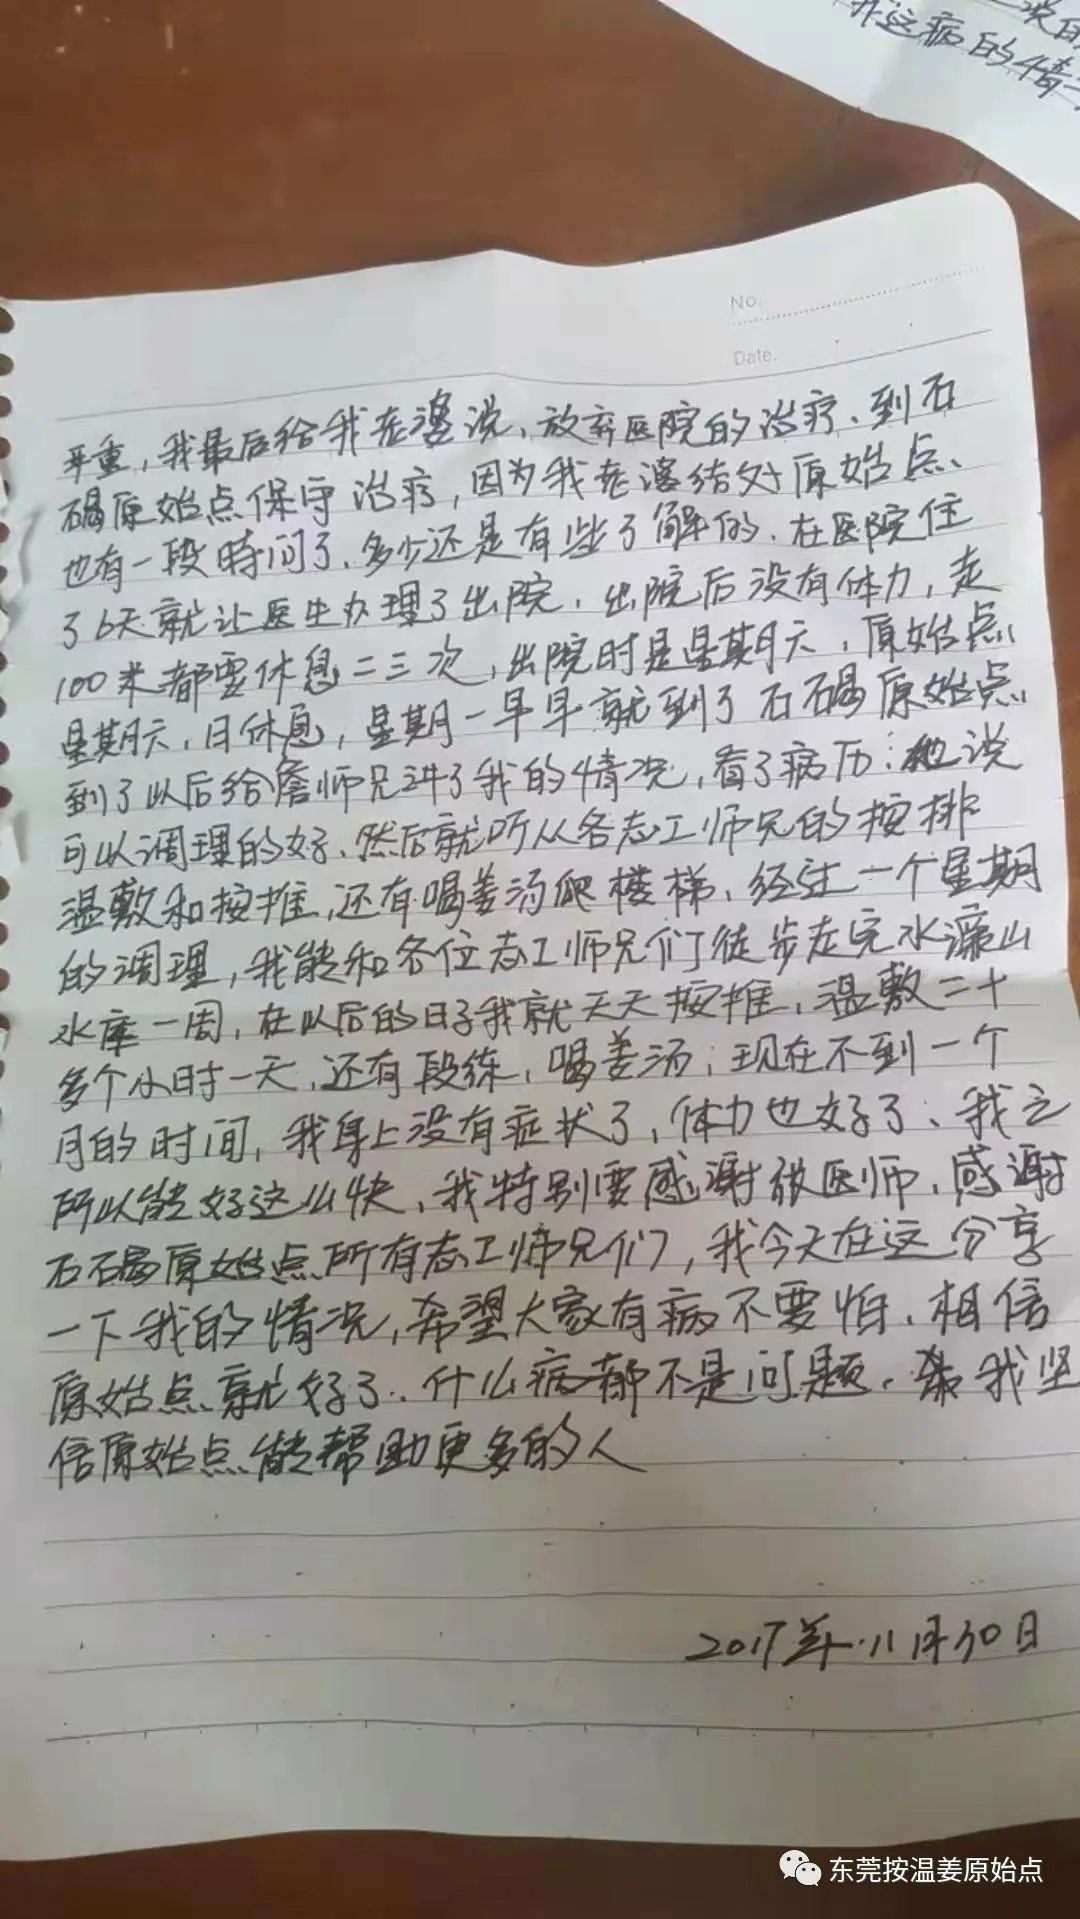 我这病的情
No.
Date.
严重，我最后给我老婆说，放弃医院的治疗、到石
碣原始点保守治疗，因为我老婆结处原始点、
也有一段時间了、多少还是有些了解的、在医院住
了6天就让医生办理了出院，出院后没有体力，走
100米都要休息二三次，出院时是星期六，原始点
星期六，日休息，星期一早早就到了石碣原始点
到了以后给詹师兄讲了我的情况，看了病历：他说
可以调理的好、然后就听从各志工师兄的按排
温敷和按推，还有喝姜汤爬楼梯、经过一个星期
的调理，我能和各位志工师兄们徒步走完水濂山
水库一周，在以后的日子我就天天按推，温敷二十
多个小时一天，还有段练，喝姜汤；现在不到一个
月的时间，我身上没有症状了，体力也好了、我之
所以能好这么快、我特别要感谢张医师、感谢
石碣原始点所有志工师兄们，我今天在这分享
一下我的情况，希望大家有病不要怕、相信
原始点就好了、什么病都不是问题、我坚
信原始点能帮助更多的人
2017年.11月30日
东莞按温姜原始点